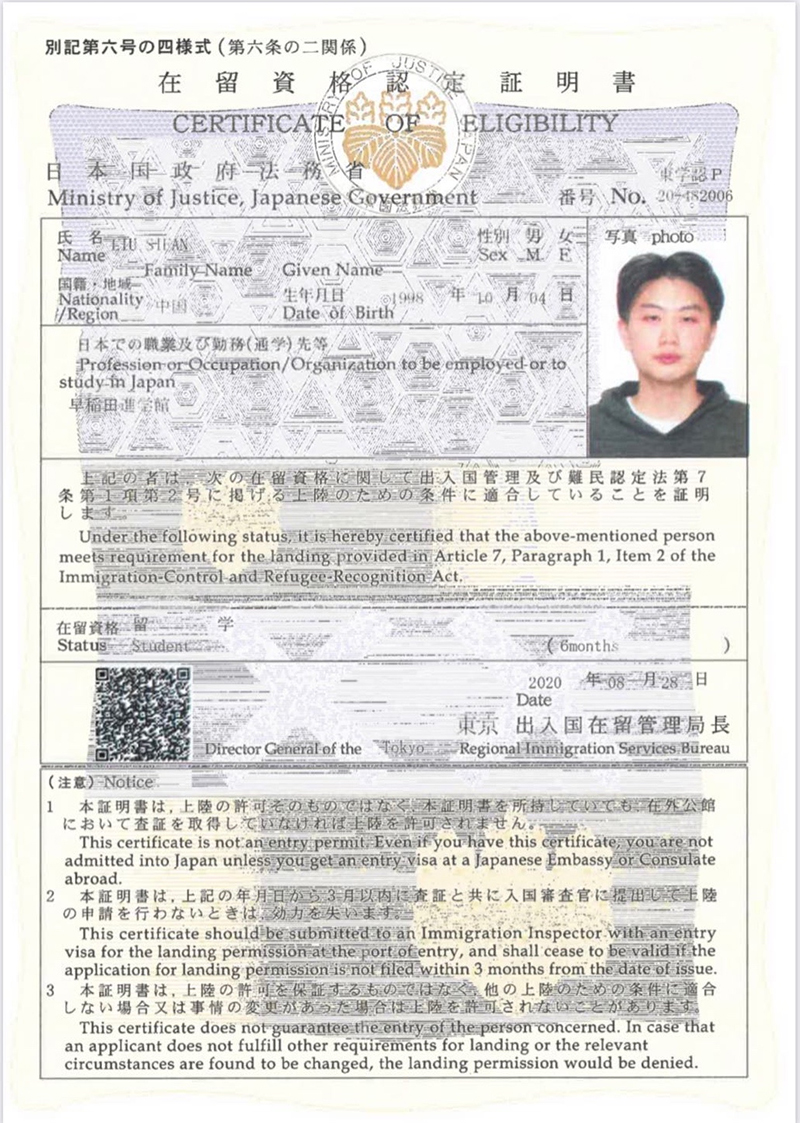 別記第六号の四様式(第六条の二関係)
在留資格認定証明書
CERTIFICATE OF ELIGIBILITY
MINISTRY OF JUSTICE JAPAN
日本国政府法務省
Ministry of Justice, Japanese Government
東学認P
番号 No. 20-482006
氏名 LIU SIEAN
Name
Family Name Given Name
性別 男 女
Sex M. F.
写真 photo
国籍・地域
Nationality
/Region 中国
生年月日 1998 年 10 月 04 日
Date of Birth
日本での職業及び勤務(通学)先等
Profession or Occupation/Organization to be employed or to
study in Japan
早稲田進学館
上記の者は、次の在留資格に関して出入国管理及び難民認定法第7
条第1項第2号に掲げる上陸のための条件に適合していることを証明
します。
Under the following status, it is hereby certified that the above-mentioned person
meets requirement for the landing provided in Article 7, Paragraph 1, Item 2 of the
Immigration-Control and Refugee-Recognition Act.
在留資格 留学
Status Student
( 6months )
2020 年 08 月 28 日
Date
東京 出入国在留管理局長
Director General of the Tokyo Regional Immigration Services Bureau
(注意) Notice
1 本証明書は,上陸の許可そのものではなく,本証明書を所持していても,在外公館
において査証を取得していなければ上陸を許可されません。
This certificate is not an entry permit. Even if you have this certificate, you are not
admitted into Japan unless you get an entry visa at a Japanese Embassy or Consulate
abroad.
2 本証明書は,上記の年月日から3月以内に査証と共に入国審査官に提出して上陸
の申請を行わないときは,効力を失います。
This certificate should be submitted to an Immigration Inspector with an entry
visa for the landing permission at the port of entry, and shall cease to be valid if the
application for landing permission is not filed within 3 months from the date of issue.
3 本証明書は,上陸の許可を保証するものではなく,他の上陸のための条件に適合
しない場合又は事情の変更があった場合は上陸を許可されないことがあります。
This certificate does not guarantee the entry of the person concerned. In case that
an applicant does not fulfill other requirements for landing or the relevant
circumstances are found to be changed, the landing permission would be denied.